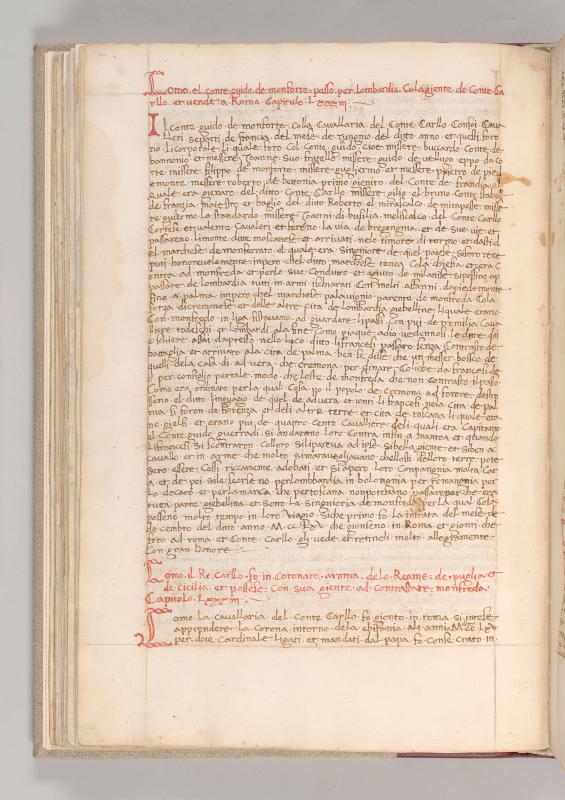 Como. el. conte. guido. de. monforte. passo. per. Lombardia. Cola giente. de Conte. Ca
rllo. et vende. a. Roma. Capitulo. Lxxxii.
Il conte. guido. de monforte. colla Cavallaria. del. Conte. Carllo.
lieri. de francia. del. mese. de. zungnio. del. ditto. anno. et questi. foro
no. li caporale. li quale. foro. Col. conte. guido. cioe. missere. buccardo. Conte. de.
bannonio. et messere. Joanne. suo. fratello. missere. guido. de
rte. missere. filippo. de monforte. missere. guglierino. et messere.
emonte. messere. roberto. de bettonia. primo gienito. del. Conte. de frandia. el
quale. era. gienero. del. ditto. Conte. Carllo. missere. gilio. el bruno. Conte.
de. franzia. maiestro. et baglio. del ditto. Roberto. el miraschalco. de miraposse. misse
re. guiermo. lo standardo. missere. Joanni. di. meliscalco. del. Conte. Carllo
Cortese. et valente. Cavalieri. et la via. de bregongnia. et de
passareno. li monte. ditte. et arrivati. nelo. di torino. et dasti. di
el marchese. de monferrato. el quale. era. Singniore. de quel. paiese. si
puti. honorevolemente. impero. chel. ditto. marchese. tenea. Cola. chiesa. et era. C
ontra. ad monfreda. et per lo suo. Conduto. et agiuto. de milanise. si posono. ap
passare. de lombardia. tutti. in armi. schierati. Con molti. affanni. da piedemonte
fino. a palma. impero chel. marchese. palavigino. parente. de monfreda. Cola.
forza. di Cremonese. et delle. altre. Cita. de lombardia. giebelline. li quale. erano.
Con. monfredo. in liga. ad. guardare. li passi. Con piu. de. tremilia. Cava
lliere. todeschi. et lombardi. ala fine. Como. piaque. adio. vedennoli. le ditte
e schiere. assai. dapresso. nello. loco. ditto. li francesi. passaro. senza. Contrasto. de
battaglia. et arrivaro. ala. cita. de. palma. ben se. disse. che. un messer. bosso. de
quelli. dela. casa. di. advera. che. cremona. per. dinare. Cobebe. da francesi. de
per. consiglio. per tale. modo. che. loste. de monfreda. che. non contrasto. il passo
Como. era. ordinato. per la qual. Cosa. po. il popolo. de Cremona. ad furore. destru
sseno. el ditto. lingnaio. de. quel. de advera. et gionti. li francesi. nela. Cita. de pal
ma. si foron. de fiorenza. et deli. altre. terre. et cita. de toscana. li quale. era
no. gielfi. et erano. piu. de. quatro. cento. Cavalliere. deli. quali. era. Capitano
el Conte. guido. guerradi. si andareno. Loro. Contra. infin. a mantoa. et quando
li francesi. si Contraron. Colloro. ad. ipsi. bella. giente. et si ben a
cavallo. et in. arme. che molto. si maravegliavano. che. dell oro. terre. pote
sero. essere. Cossi. riccamente. adobati. et si apero. loro. Compangnia. molta. Car
a. et. de. poi. seli. per lombardia. in bolongnia. per. Romangnia. per
lo. docato. et per la marca. che per toscana. non potevano. passare. per che. era
tuta. parte. giebellina. et sotto. la. Singnioria. de monfreda. per la. qual. Cosa
posseno. molto. tempo. in. loro. viagio. Siche. primo. fo. la intrata. del mese. de
de cenbro. del. ditto. anno. M. cc. Lxv. che. gionseno. in. Roma. et gionti. che
foro. ad roma. et Conte. Carllo. gli. vede. et retineli. molto. allegramente.
Con gran. Honore.
Como. il. Re. Carllo. fo. in Coronato. a roma. de lo Reame. de puglia et
de Cicilia. et possesse. Con sua. giente. ad. Contrastare. monfreda.
Capitolo. Lxxxiii.
Como. la. cavallaria. del. Conte. Carllo. fo. gionto. in. roma. si intese.
apprendere. la. Corona. intorno. dela. epifania. ad. anni. M. cc. Lxv.
per. doie. Cardinale. ligati. et mandati. dal. papa. fo. Conse. crato. in